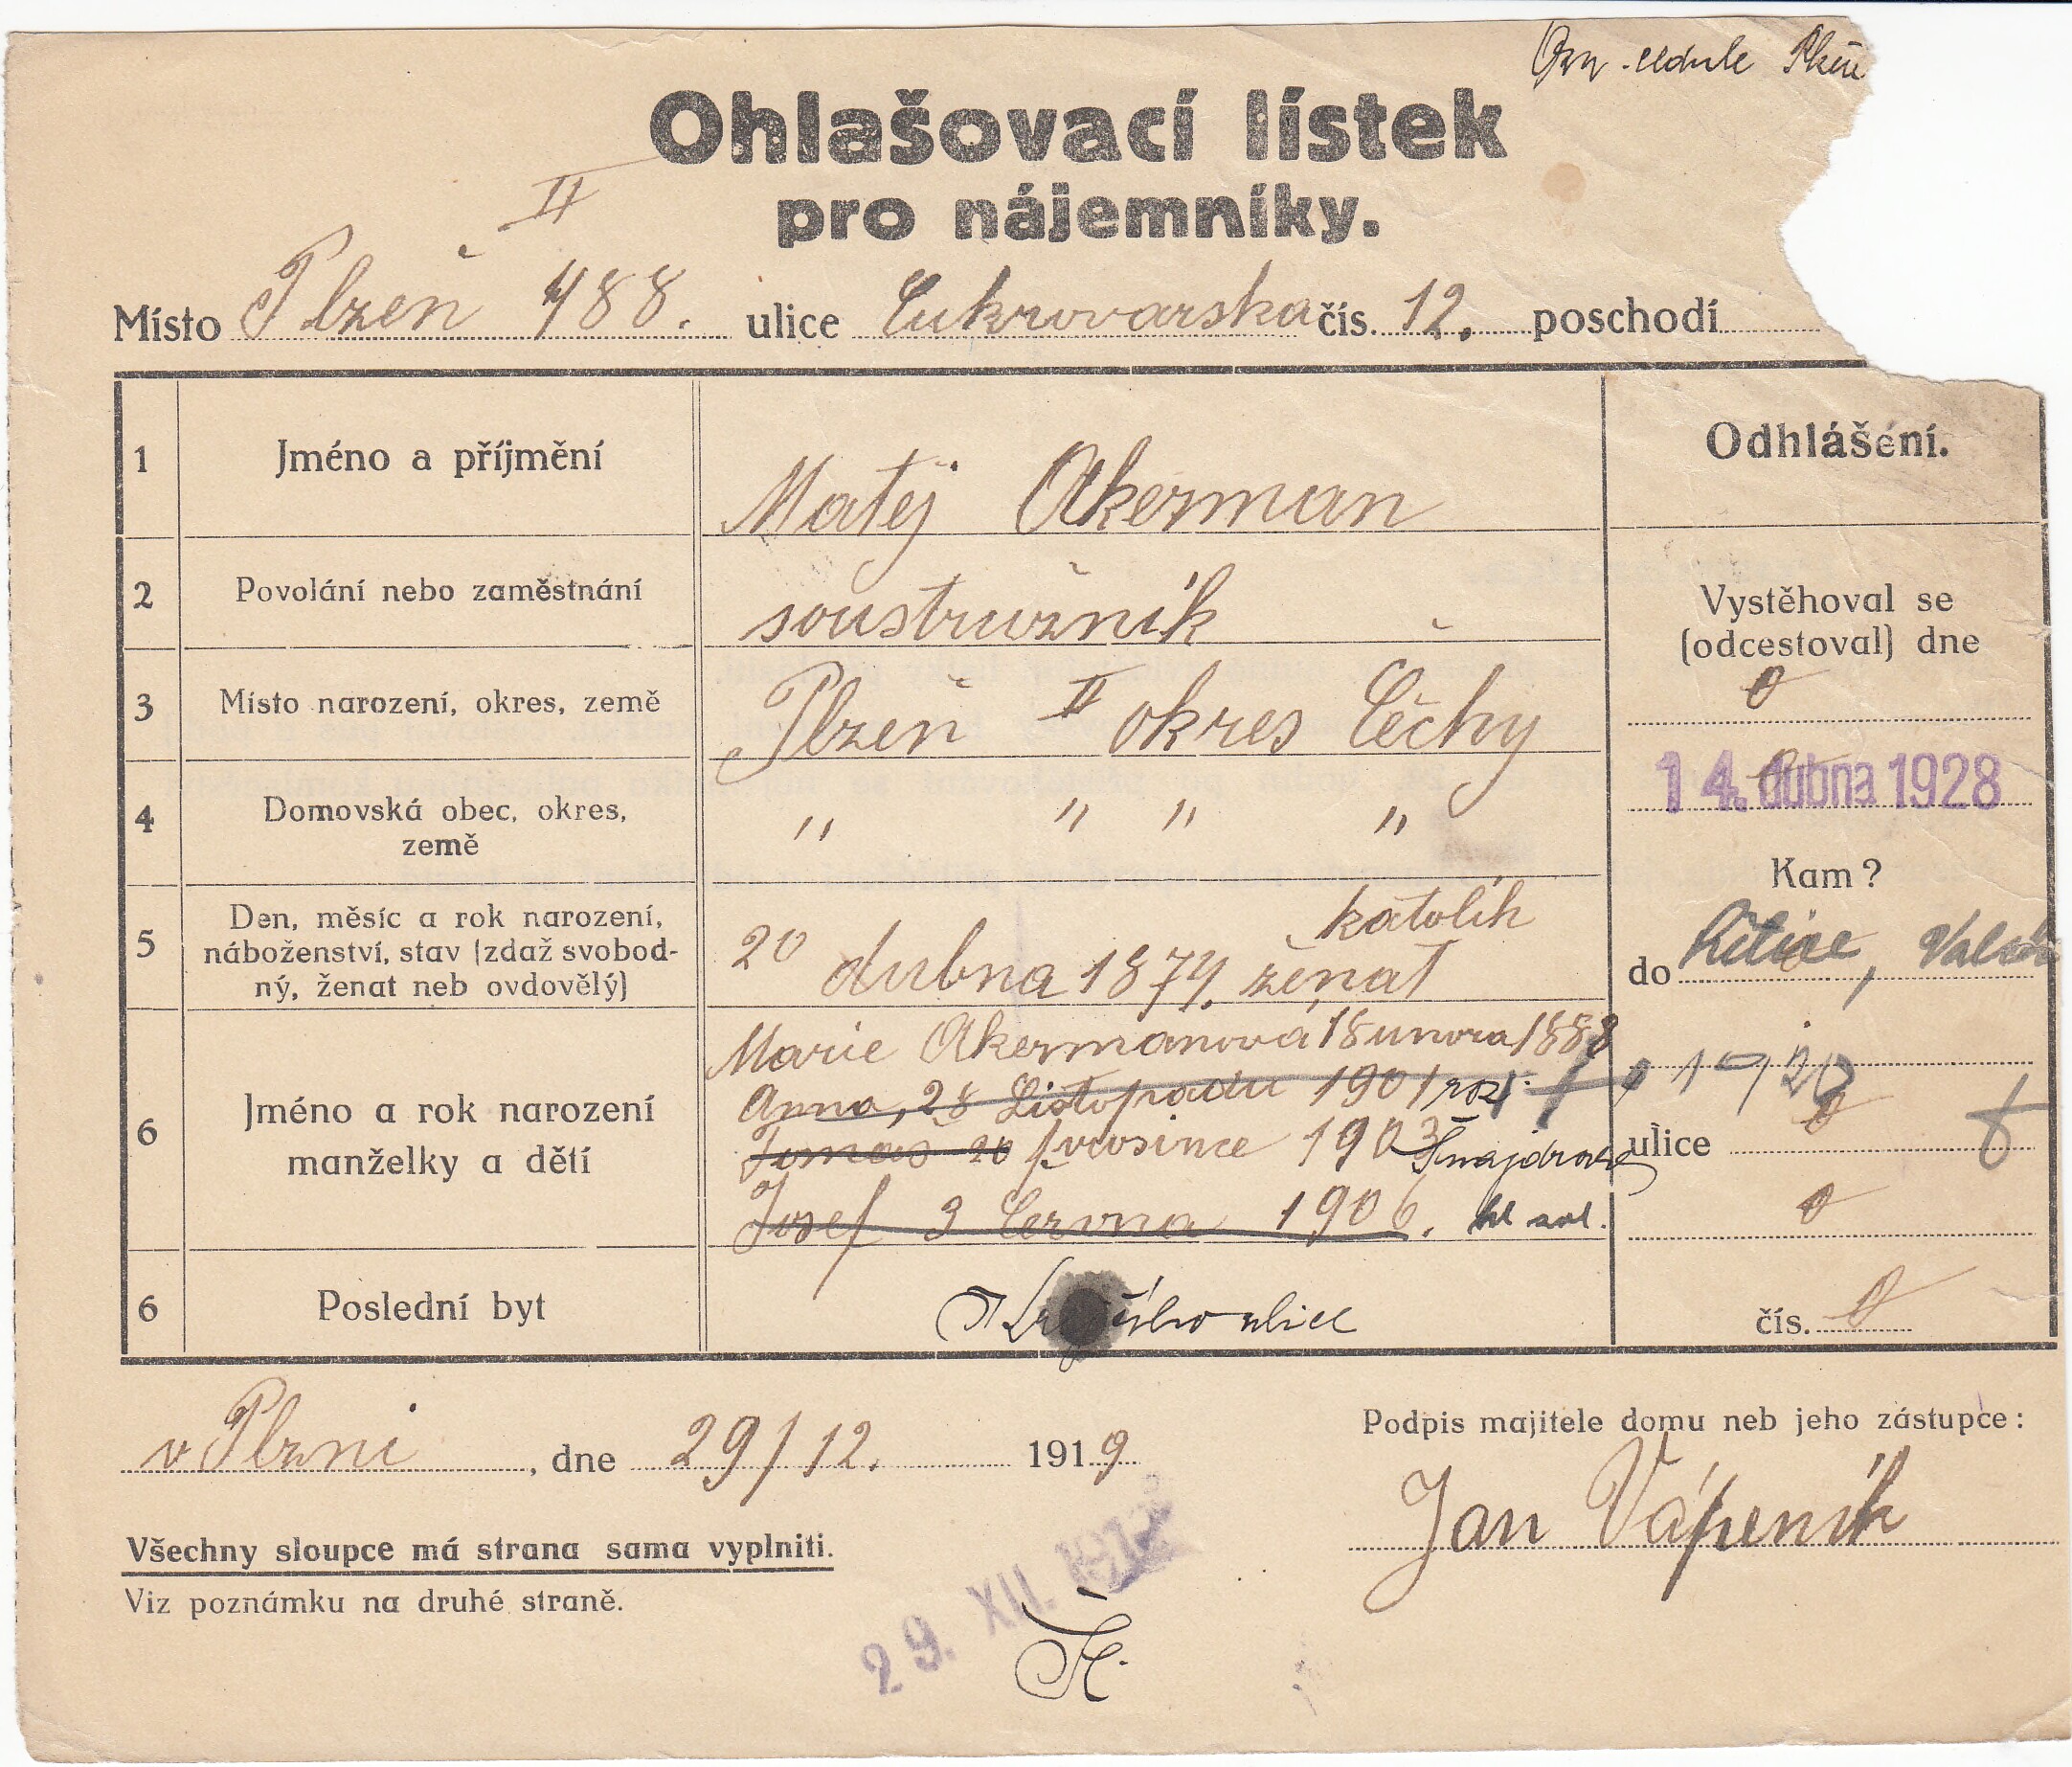 cedule
Ohlašovací lístek
pro nájemníky.
II
Místo Plzeň 488. ulice Cukrovarska čís. 12. poschodí
1 Jméno a příjmění Matěj Akerman
2 Povolání nebo zaměstnání soustružnik
3 Místo narození, okres, země Plzeň II okres Čéchy
4 Domovská obec, okres, země " " " "
5 Den, měsíc a rok narození, náboženství, stav (zdaž svobodný, ženat neb ovdovělý) 20 dubna 1874. ženat katolík
6 Jméno a rok narození manželky a dětí
Marie Akermanová 18 unora 1888
Anna, 28 Listopadu 1901
Tomáš 20 prosince 1903
Josef 3 Června 1906.
6 Poslední byt ulice
Odhlášéní.
Vystěhoval se
(odcestoval) dne
0
14. dubna 1928
Kam?
do Litice,
ulice
0
čís. 0
v Plzni, dne 29/12. 1919
Podpis majitele domu neb jeho zástupce:
Jan Vápeník
Všechny sloupce má strana sama vyplniti.
Viz poznámku na druhé straně.
29. XII.